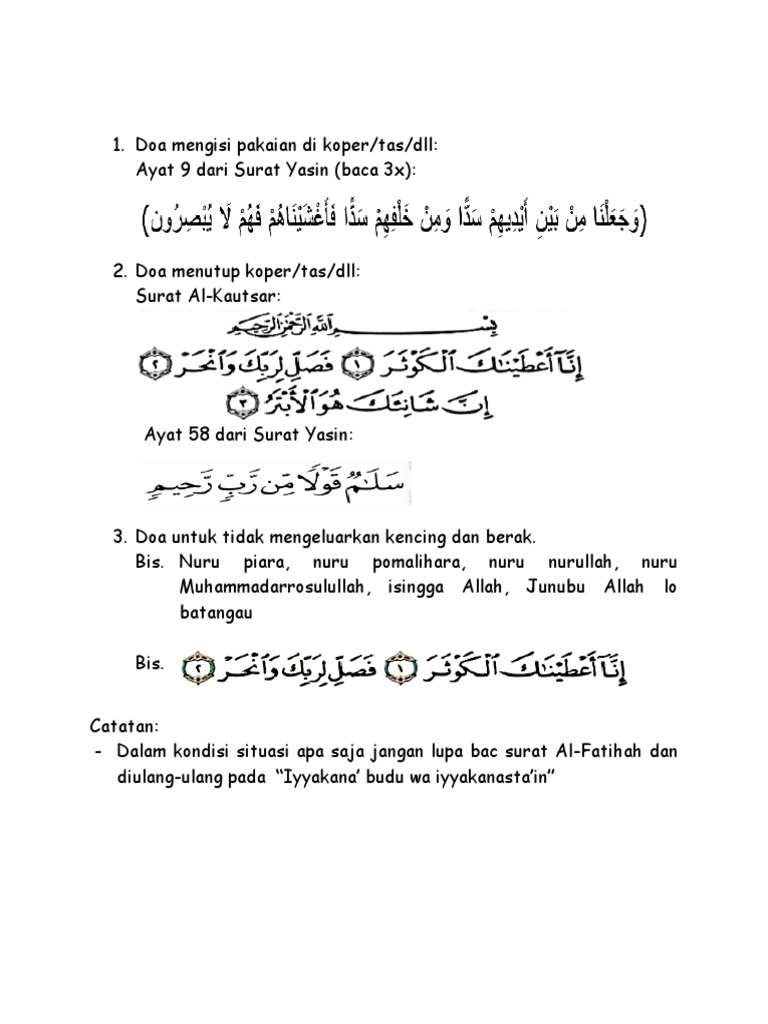 1. Doa mengisi pakaian di koper/tas/dll:
Ayat 9 dari Surat Yasin (baca 3x):
(وَجَعَلْنَا مِنْ بَيْنِ أَيْدِيهِمْ سَدًّا وَمِنْ خَلْفِهِمْ سَدًّا فَأَغْشَيْنَاهُمْ فَهُمْ لَا يُبْصِرُون)
2. Doa menutup koper/tas/dll:
Surat Al-Kautsar:
بِسْــــــمِ اللَّهِ الرَّحْمَٰنِ الرَّحِيمِ
إِنَّآ أَعْطَيْنَٰكَ ٱلْكَوْثَرَ ١ فَصَلِّ لِرَبِّكَ وَٱنْحَرْ ٢
إِنَّ شَانِئَكَ هُوَ ٱلْأَبْتَرُ ٣
Ayat 58 dari Surat Yasin:
سَلَٰمٌ قَوْلًا مِّن رَّبٍّ رَّحِيمٍ
3. Doa untuk tidak mengeluarkan kencing dan berak.
Bis. Nuru piara, nuru pomalihara, nuru nurullah, nuru
Muhammadarrosulullah, isingga Allah, Junubu Allah lo
batangau
Bis. إِنَّآ أَعْطَيْنَٰكَ ٱلْكَوْثَرَ ١ فَصَلِّ لِرَبِّكَ وَٱنْحَرْ ٢
Catatan:
- Dalam kondisi situasi apa saja jangan lupa bac surat Al-Fatihah dan
diulang-ulang pada “Iyyakana’ budu wa iyyakanasta’in”